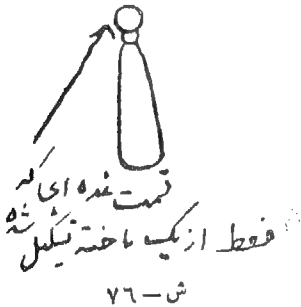 قسمت غده ای که
فقط از یک یاخته تشکیل شده
ش – ٧٦